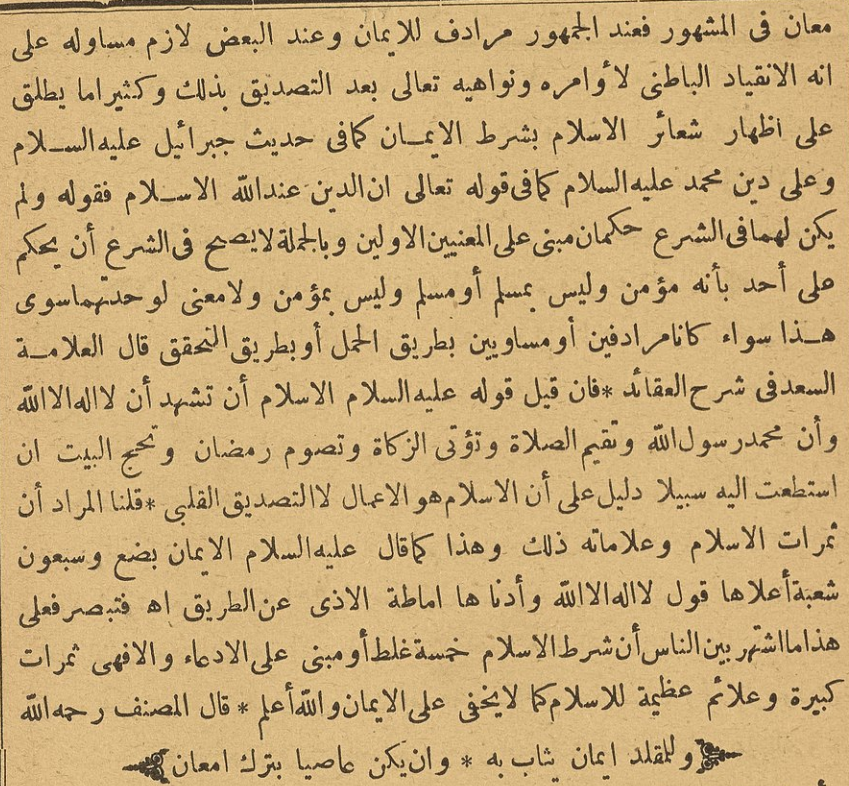 معان فى المشهور فعند الجمهور مرادف للايمان وعند البعض لازم مساوله على
انه الانقياد الباطنى لأوامره ونواهيه تعالى بعد التصديق بذلك وكثيراما يطلق
على اظهار شعائر الاسلام بشرط الايمان كمافى حديث جبرائيل عليه السلام
وعلى دين محمد عليه السلام كمافى قوله تعالى ان الدين عند الله الاسلام فقوله ولم
يكن لهما فى الشرع حكمان مبنى على المعنيين الاولين وبالجملة لا يصح فى الشرع أن يحكم
على أحد بأنه مؤمن وليس بمسلم أومسلم وليس بمؤمن ولا معنى لوحدتهما سوى
هذا سواء كانا مرادفين أومساويين بطريق الحمل أو بطريق التحقق قال العلامة
السعد فى شرح العقائد * فان قيل قوله عليه السلام الاسلام أن تشهد أن لا اله الا الله
وأن محمد رسول الله وتقيم الصلاة وتؤتى الزكاة وتصوم رمضان وتحج البيت ان
استطعت اليه سبيلا دليل على أن الاسلام هو الاعمال لا التصديق القلبى * قلنا المراد أن
ثمرات الاسلام وعلاماته ذلك وهذا كما قال عليه السلام الايمان بضع وسبعون
شعبة أعلاها قول لا اله الا الله وأدناها اماطة الاذى عن الطريق اه فتبصر فعلى
هذا ما اشتهر بين الناس أن شرط الاسلام خمسة غلط أو مبنى على الادعاء والا فهى ثمرات
كبيرة وعلائم عظيمة للاسلام كما لا يخفى على الايمان والله أعلم * قال المصنف رحمه الله
وللمقلد ايمان يثاب به * وان يكن عاصيا بترك امعان